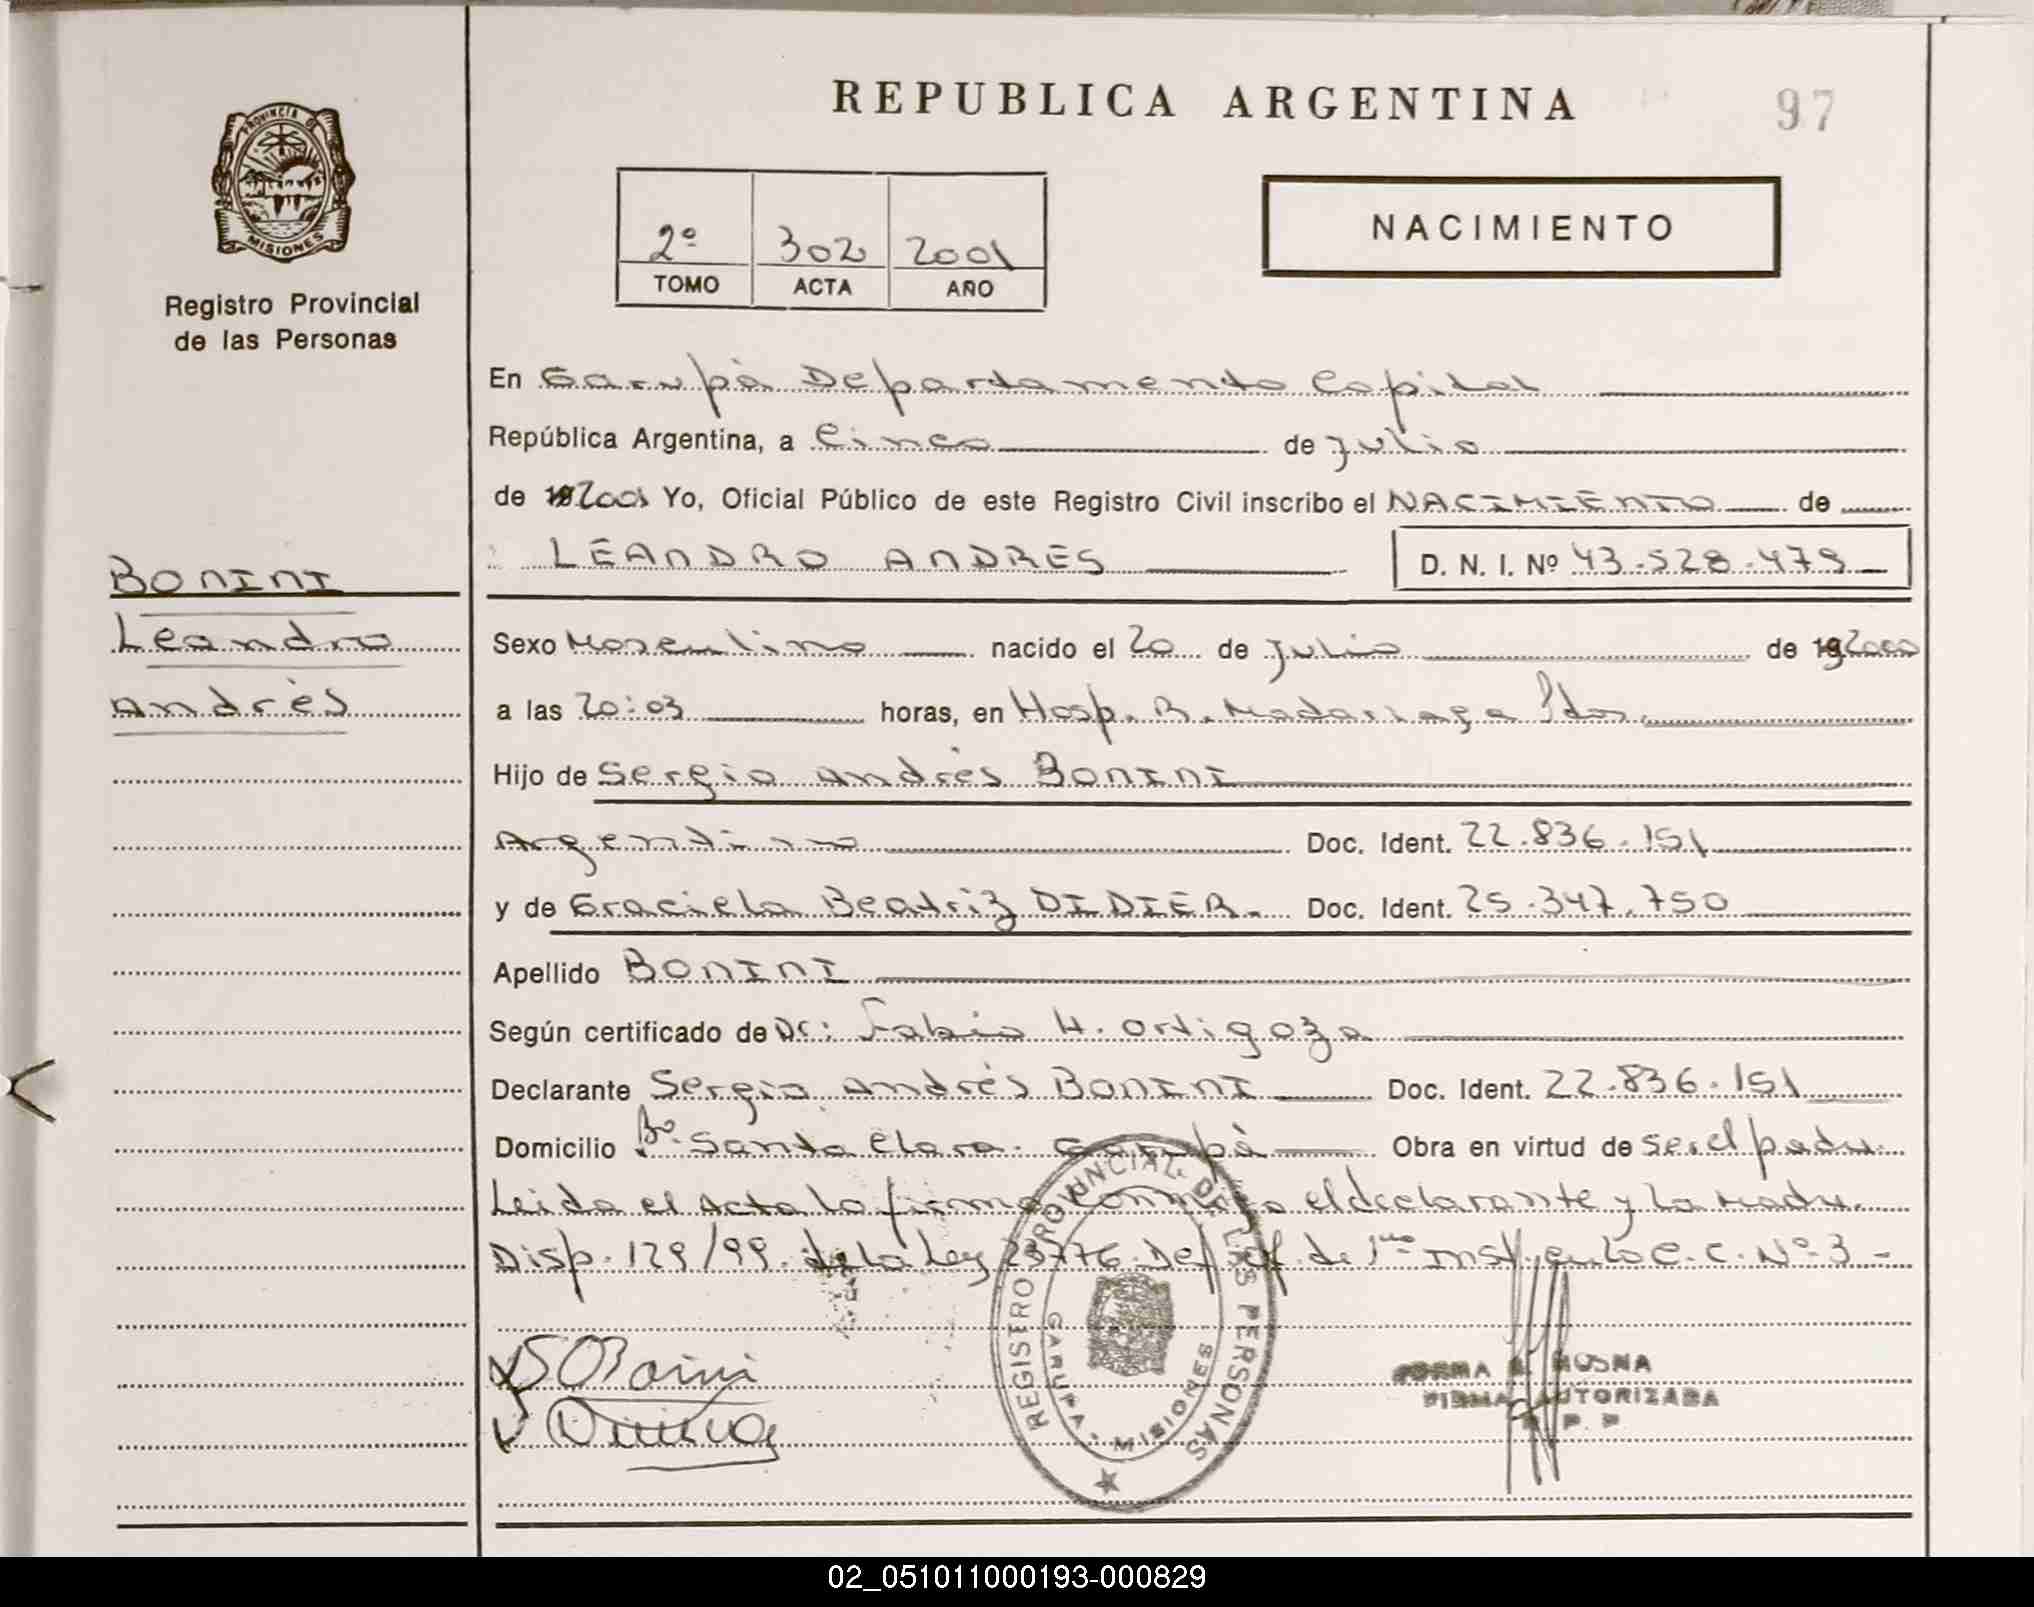 REPUBLICA ARGENTINA
97
PROVINCIA DE
MISIONES
Registro Provincial
de las Personas
2º 302 2001
TOMO ACTA AÑO
NACIMIENTO
En Garupà Departamento Capital
República Argentina, a Cinco de Julio
de 192001 Yo, Oficial Público de este Registro Civil inscribo el NACIMIENTO de
LEANDRO ANDRES D. N. I. Nº 43.528.479
BONINI
Leandro
Andrès
Sexo Masculino nacido el 20 de Julio de 192000
a las 20:03 horas, en Hosp. R. Madariaga Pdas.
Hijo de Sergio Andrès BONINI
Argentino Doc. Ident. 22.836.151
y de Graciela Beatriz DIDIER. Doc. Ident. 25.347.750
Apellido BONINI
Según certificado de Dr: Fabio H. Ortigoza
Declarante Sergio Andrès BONINI Doc. Ident. 22.836.151
Domicilio Bº. Santa Clara. Garupà Obra en virtud de ser el padre.
Leida el Acta la firma conmigo el declarante y la Madre.
Disp. 129/99. de la Ley 23776. Def. Of. de 1era Inst. C. C. Nº 3 -
REGISTRO PROVINCIAL DE LAS PERSONAS
GARUPA - MISIONES
NORMA MOSNA
FIRMA AUTORIZADA
R. P. P.
02_051011000193-000829